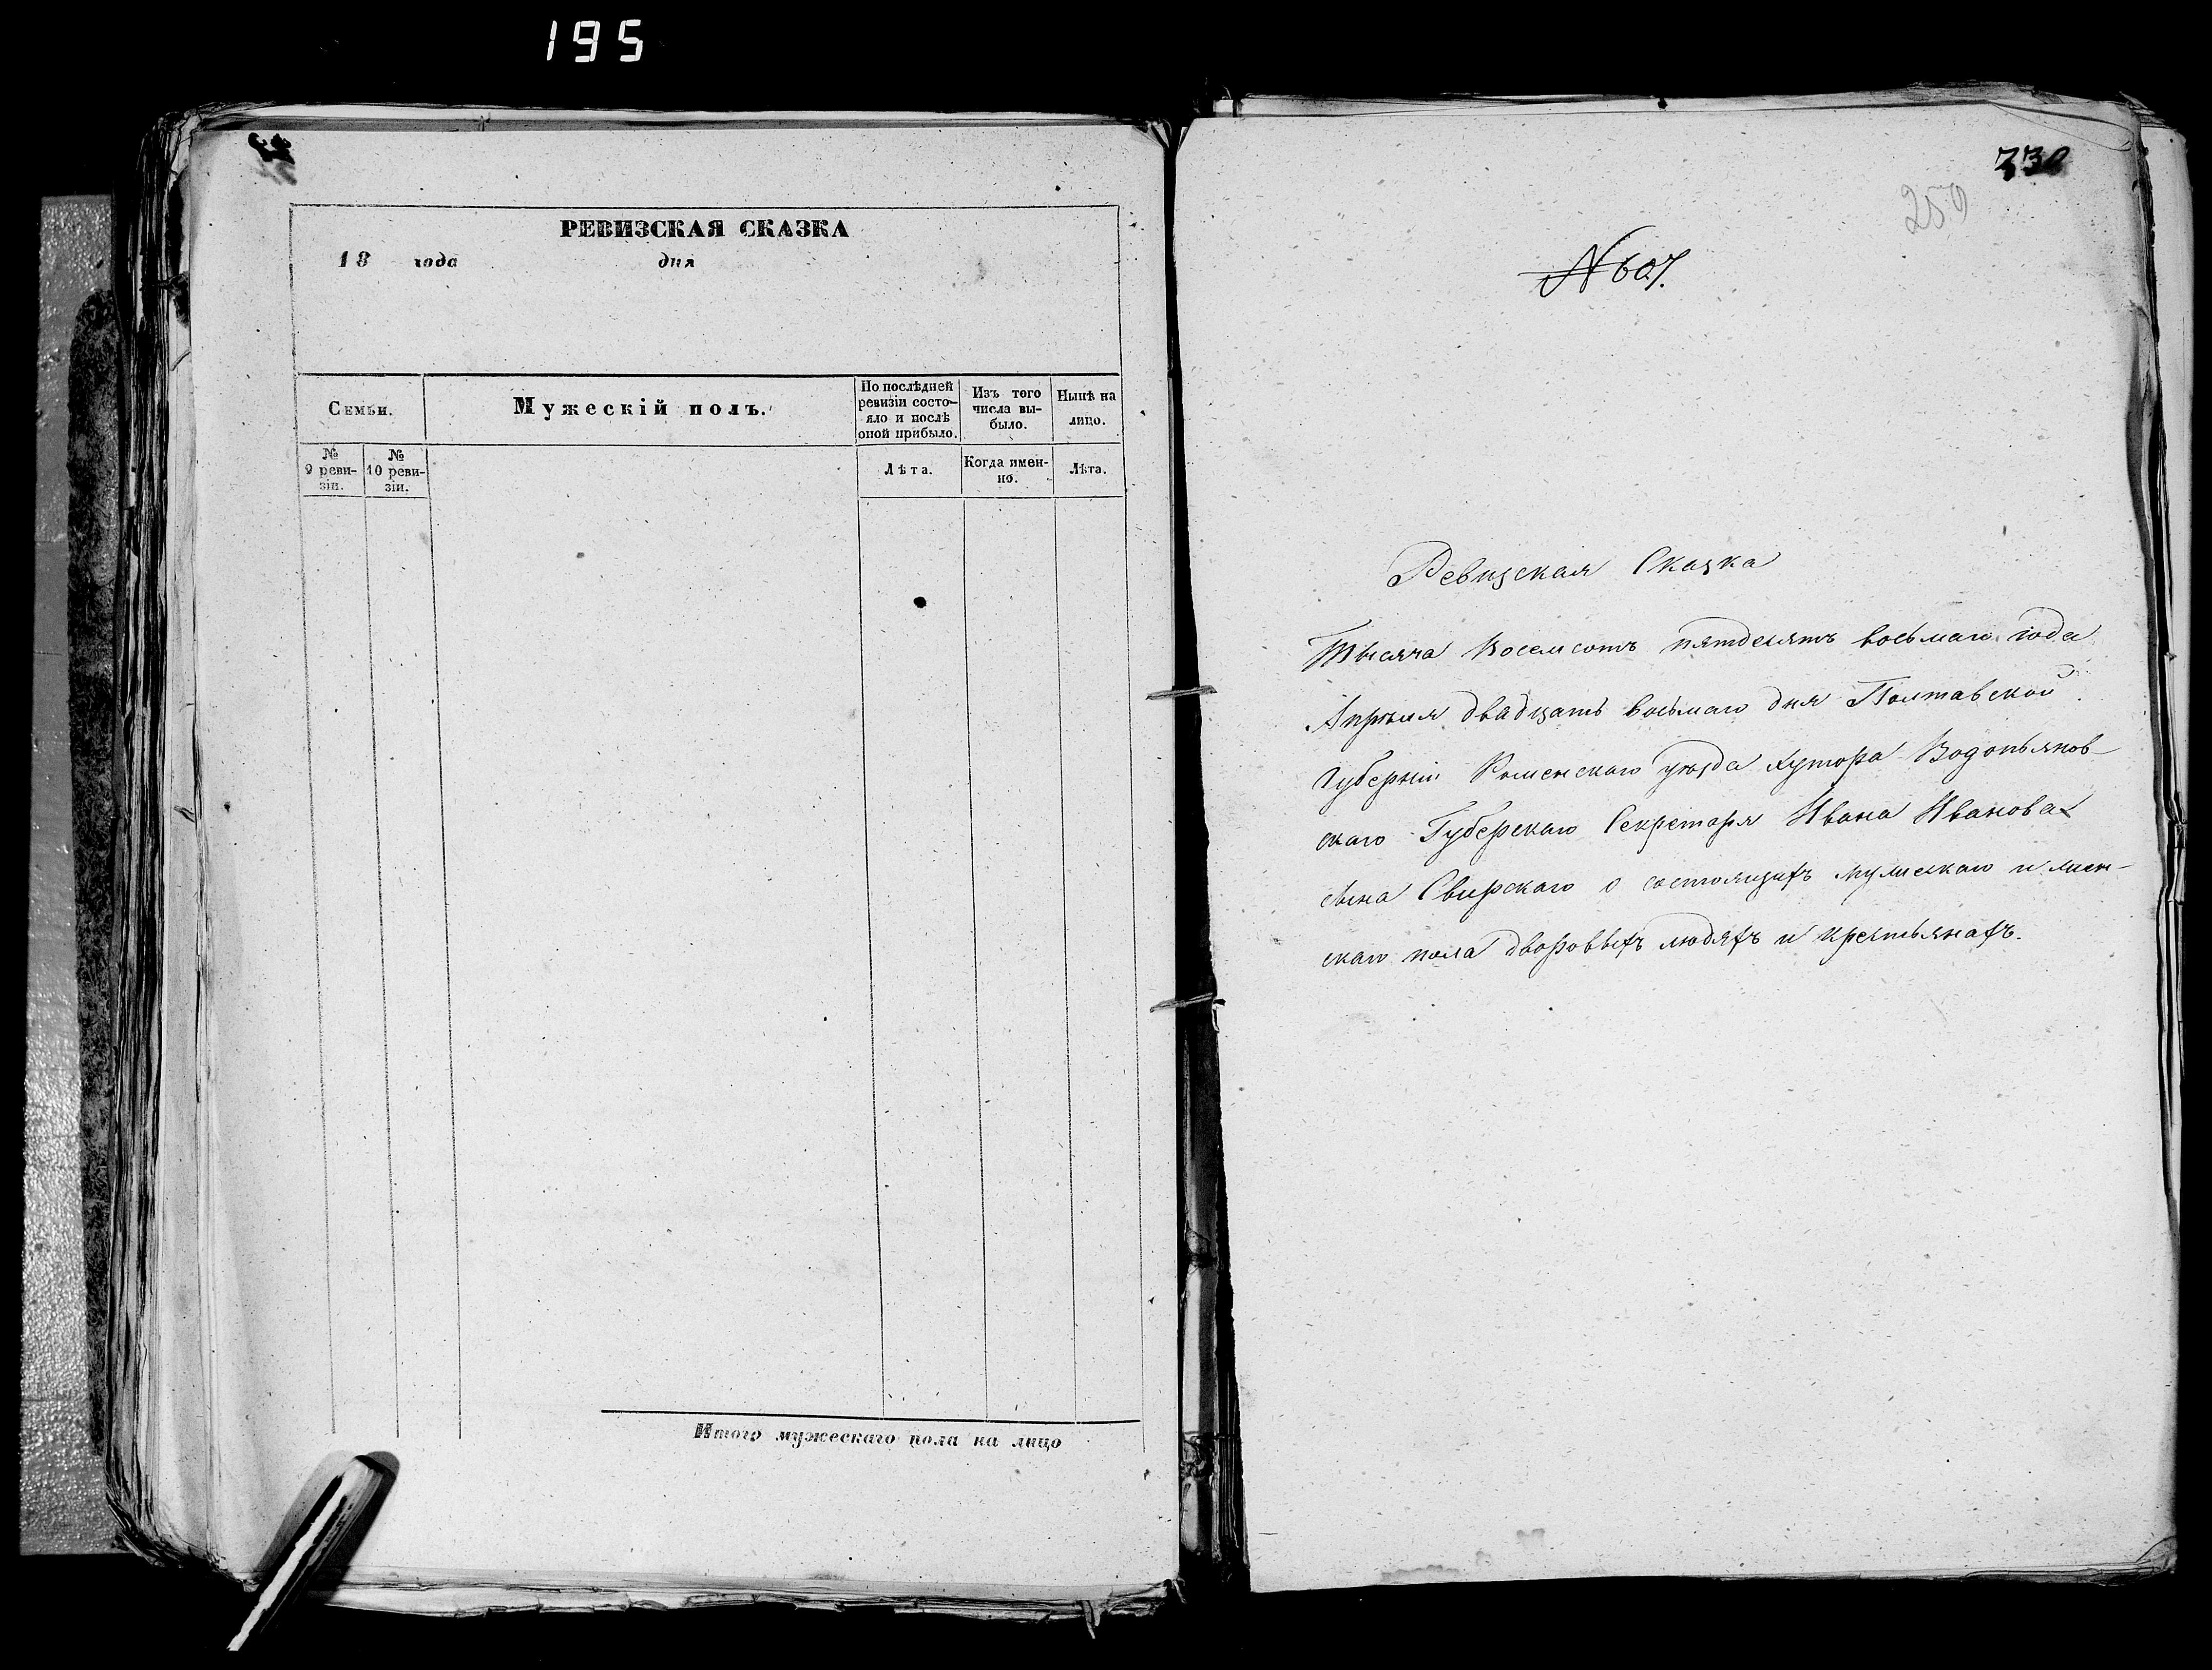 195
РЕВИЗСКАЯ СКАЗКА
18 года дня
Семьи.
Мужескій полъ.
По послѣдней
ревизіи состо-
яло и послѣ
оной прибыло.
Изъ того
числа вы-
было.
Нынѣ на
лицо.
№
9 реви-
зіи.
№
10 реви-
зіи.
Лѣта.
Когда имен-
но.
Лѣта.
Итого мужескаго пола на лицо
730
250
N 607.
Ревизская Сказка
Тысяча Восемсотъ пятдесятъ восьмаго года
Апрѣля двадцать восьмаго дня Полтавской
Губерніи Роменскаго уѣзда Хутора Водопьянов-
скаго Губерскаго Секретаря Ивана Иванова
сына Свирскаго о состоящихъ мужескаго и жен-
скаго пола дворовыхъ людяхъ и крестьянахъ.